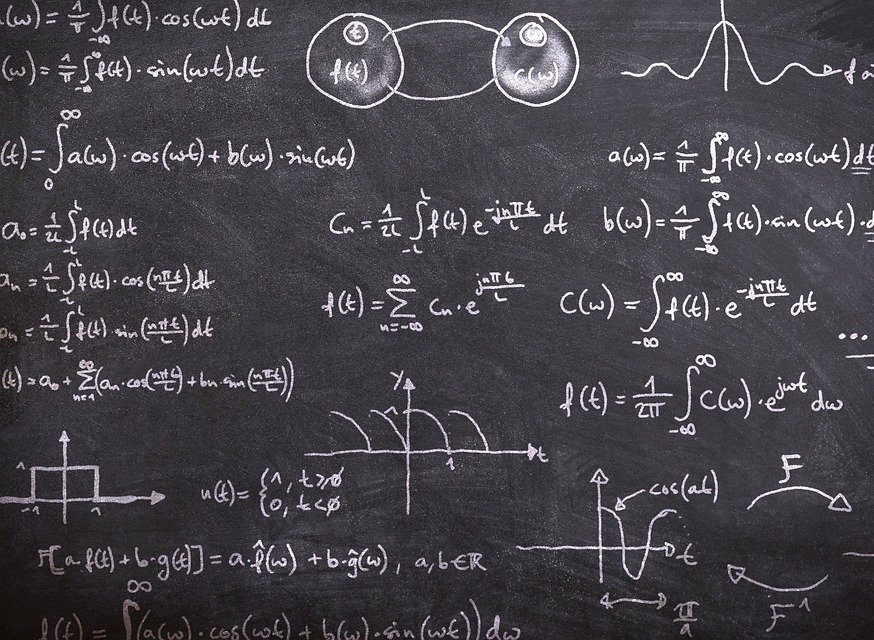 (ω) = 1/π ∫_{-∞} f(t)·cos(ωt) dt
(ω) = 1/π ∫_{-∞}^{∞} f(t)·sin(ωt)dt
t
f(t)
C(ω)
(t) = ∫_0^∞ a(ω)·cos(ωt) + b(ω)·sin(ωt)
a(ω) = 1/π ∫_{-∞}^{∞} f(t)·cos(ωt)dt
b(ω) = 1/π ∫_{-∞}^{∞} f(t)·sin(ωt)·d
a₀ = 1/2L ∫_{-L}^{L} f(t)dt
Cn = 1/2L ∫_{-L}^{L} f(t) e^{-jnπt/L} dt
an = 1/L ∫_{-L}^{L} f(t)·cos(nπt/L)dt
f(t) = ∑_{n=-∞}^{∞} Cn·e^{jnπt/L}
C(ω) = ∫_{-∞}^{∞} f(t)·e^{-jnπt/L} dt
bn = 1/L ∫_{-L}^{L} f(t) sin(nπt/L)dt
...
(t) = a₀ + ∑_{n=1}^{∞} (an·cos(nπt/L) + bn·sin(nπt/L))
f(t) = 1/2π ∫_{-∞}^{∞} C(ω)·e^{jωt} dω
y
1
1
t
1
-1
1
u(t) = {1, t≥0
0, t<0
cos(at)
t
F
F[a·f(t) + b·g(t)] = a·f̂(ω) + b·ĝ(ω), a,b∈ℝ
F⁻¹
f(t) = ∫^∞ (a(ω)·cos(ωt) + b(ω)·sin(ωt)) dω